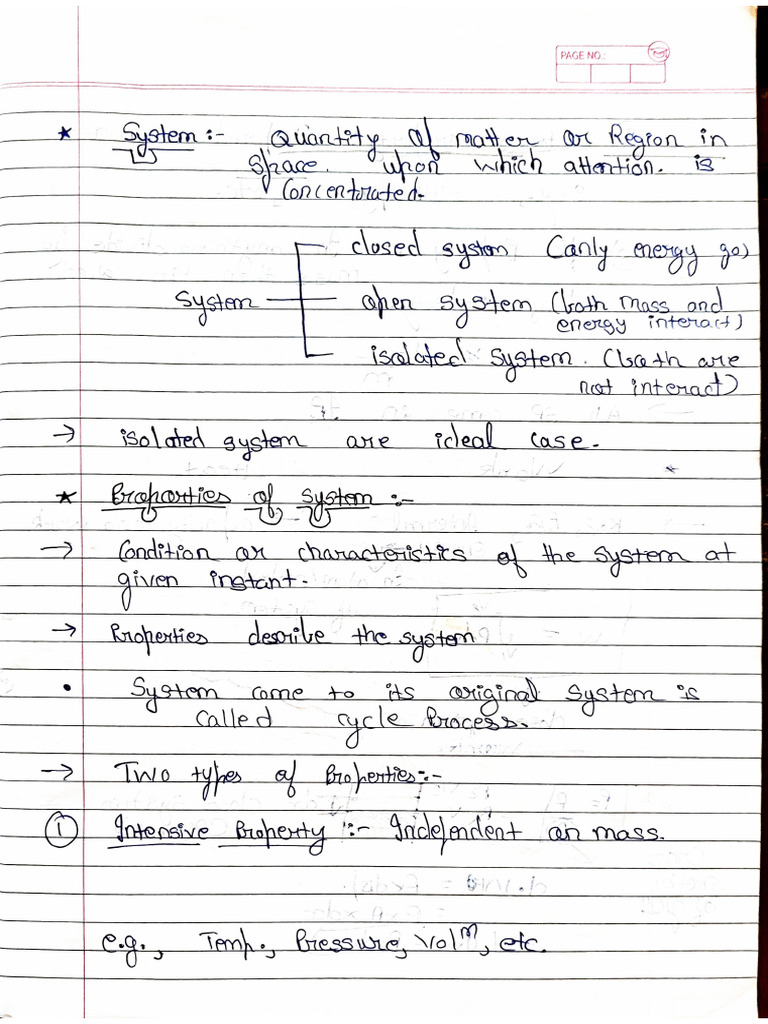 PAGE NO.:
* System :- Quantity of matter or Region in
space. upon which attention. is
Concentrated.
closed system (only energy go)
System open system (both mass and
energy interact)
isolated system. (both are
not interact)
→ isolated system are ideal case.
* Properties of system :-
→ Condition or characteristics of the system at
given instant.
→ Properties describe the system
• System come to its original system is
called cycle Process.
→ Two types of Properties:-
① Intensive Property :- Independent on mass.
e.g., Temp., Pressure, Vol^m, etc.